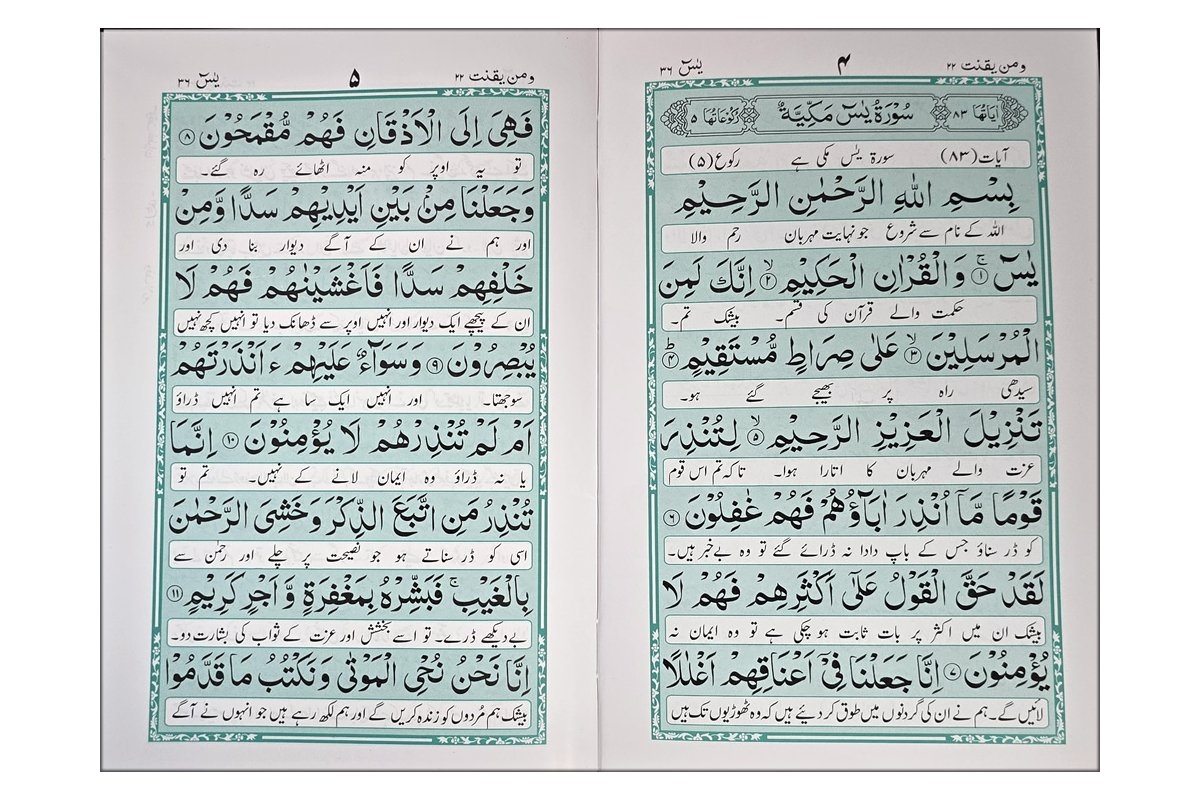 ومن یقنت ۲۲
۴
یٰسٓ ۳۶
اٰیَاتُهَا ۸۳
سُوْرَةُ یٰسٓ مَكِّیَّةٌ
رُكُوْعَاتُهَا ۵
آیات (۸۳) سورۃ یٰس مکی ہے رکوع (۵)
بِسْمِ اللّٰهِ الرَّحْمٰنِ الرَّحِیْمِ
اللہ کے نام سے شروع جو نہایت مہربان رحم والا
یٰسٓ ۚ﴿۱﴾ وَ الْقُرْاٰنِ الْحَكِیْمِ ۙ﴿۲﴾ اِنَّكَ لَمِنَ
حکمت والے قرآن کی قسم۔ بیشک تم۔
الْمُرْسَلِیْنَ ۙ﴿۳﴾ عَلٰی صِرَاطٍ مُّسْتَقِیْمٍ ؕ﴿۴﴾
سیدھی راہ پر بھیجے گئے ہو۔
تَنْزِیْلَ الْعَزِیْزِ الرَّحِیْمِ ۙ﴿۵﴾ لِتُنْذِرَ
عزت والے مہربان کا اتارا ہوا۔ تاکہ تم اس قوم
قَوْمًا مَّاۤ اُنْذِرَ اٰبَآؤُهُمْ فَهُمْ غٰفِلُوْنَ ﴿۶﴾
کو ڈر سناؤ جس کے باپ دادا نہ ڈرائے گئے تو وہ بےخبر ہیں۔
لَقَدْ حَقَّ الْقَوْلُ عَلٰۤی اَكْثَرِهِمْ فَهُمْ لَا
بیشک ان میں اکثر پر بات ثابت ہو چکی ہے تو وہ ایمان نہ
یُؤْمِنُوْنَ ﴿۷﴾ اِنَّا جَعَلْنَا فِیْۤ اَعْنَاقِهِمْ اَغْلٰلًا
لائیں گے۔ ہم نے ان کی گردنوں میں طوق کر دیئے ہیں کہ وہ ٹھوڑیوں تک ہیں
ومن یقنت ۲۲
۵
یٰسٓ ۳۶
فَهِیَ اِلَی الْاَذْقَانِ فَهُمْ مُّقْمَحُوْنَ ﴿۸﴾
تو یہ اوپر کو منہ اٹھائے رہ گئے۔
وَ جَعَلْنَا مِنْۢ بَیْنِ اَیْدِیْهِمْ سَدًّا وَّ مِنْ
اور ہم نے ان کے آگے دیوار بنا دی اور
خَلْفِهِمْ سَدًّا فَاَغْشَیْنٰهُمْ فَهُمْ لَا
ان کے پیچھے ایک دیوار اور انہیں اوپر سے ڈھانک دیا تو انہیں کچھ نہیں
یُبْصِرُوْنَ ﴿۹﴾ وَ سَوَآءٌ عَلَیْهِمْ ءَاَنْذَرْتَهُمْ
سوجھتا۔ اور انہیں ایک سا ہے تم انہیں ڈراؤ
اَمْ لَمْ تُنْذِرْهُمْ لَا یُؤْمِنُوْنَ ﴿۱۰﴾ اِنَّمَا
یا نہ ڈراؤ وہ ایمان لانے کے نہیں۔ تم تو
تُنْذِرُ مَنِ اتَّبَعَ الذِّكْرَ وَ خَشِیَ الرَّحْمٰنَ
اسی کو ڈر سناتے ہو جو نصیحت پر چلے اور رحمٰن سے
بِالْغَیْبِ ۚ فَبَشِّرْهُ بِمَغْفِرَةٍ وَّ اَجْرٍ كَرِیْمٍ ﴿۱۱﴾
بے دیکھے ڈرے۔ تو اسے بخشش اور عزت کے ثواب کی بشارت دو۔
اِنَّا نَحْنُ نُحْیِ الْمَوْتٰی وَ نَكْتُبُ مَا قَدَّمُوْا
بیشک ہم مُردوں کو زندہ کریں گے اور ہم لکھ رہے ہیں جو انہوں نے آگے